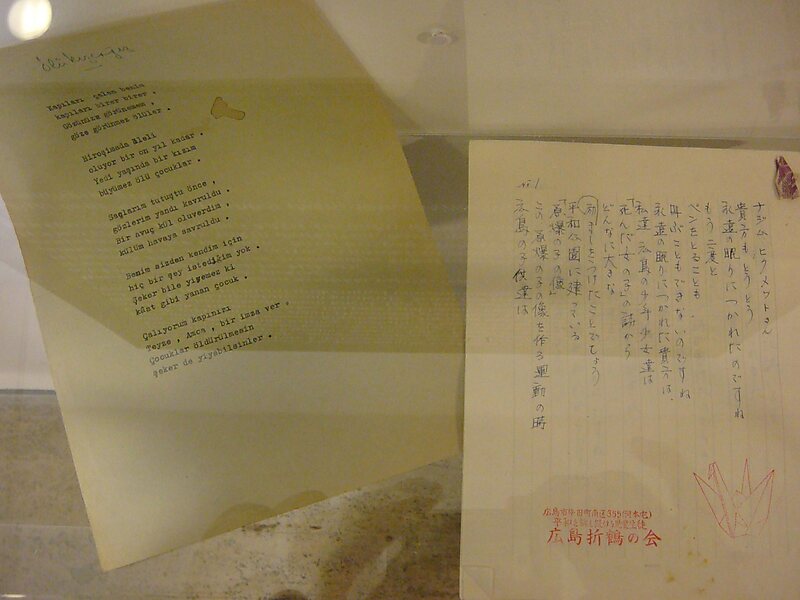 Kapıları çalan benim
kapıları birer birer .
Gözünüze görünemem ,
göze görünmez ölüler .
Hiroşimada öleli
oluyor bir on yıl kadar .
Yedi yaşında bir kızım
büyümez ölü çocuklar .
Saçlarım tutuştu önce ,
gözlerim yandı kavruldu .
Bir avuç kül oluverdim ,
külüm havaya savruldu .
Benim sizden kendim için
hiç bir şey istediğim yok .
Şeker bile yiyemez ki
kâat gibi yanan çocuk .
Çalıyorum kapınızı
Teyze , Amca , bir imza ver .
Çocuklar öldürülmesin
şeker de yiyebilsinler .
No.1
ナジム ヒクメットさん
貴方もとうとう
永遠の眠りにつかれたのですね
もう二度と
ペンをとることも
叫ぶこともできないのですね
永遠の眠りにつかれた貴方は、
私達広島の少年少女達は
「死んだ女の子」の詩から
どんなに大きな
励ましをうけたことでしょう
平和公園に建っている
「原爆の子の像」
この原爆の子の像を作る運動の時
広島の子供達は
広島折鶴の会